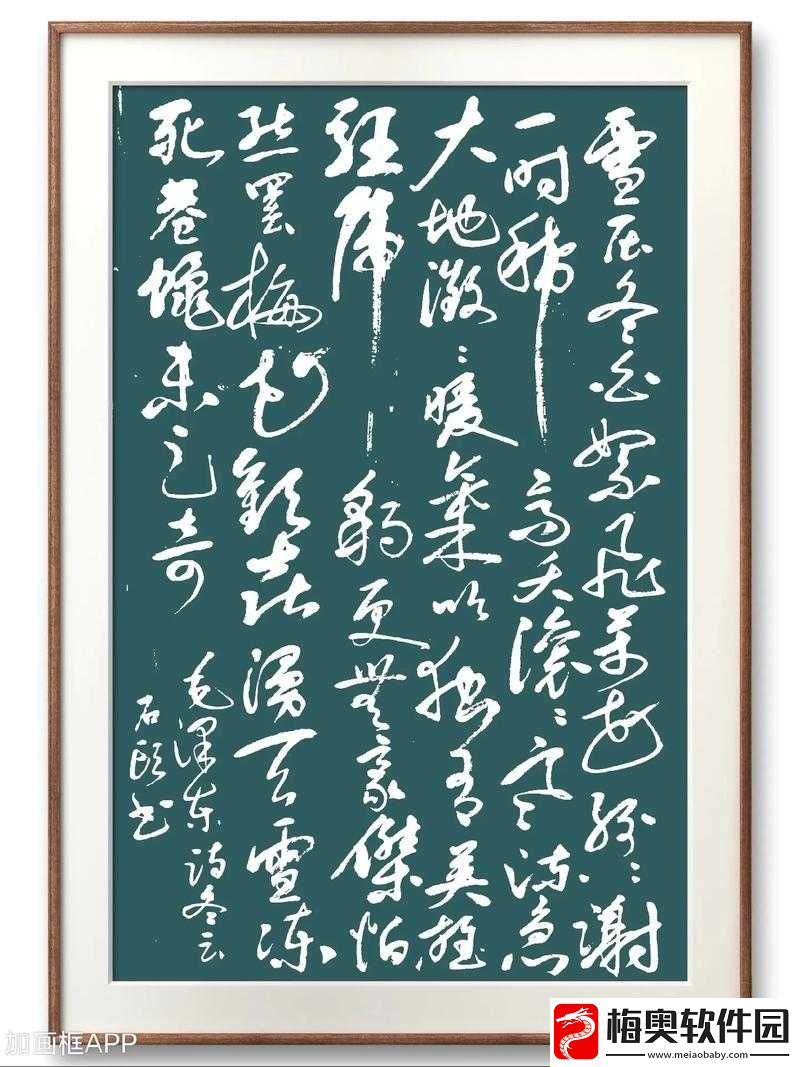 雪压冬云白絮飞萬花纷纷谢
一时稀高天滚滚寒流急
大地微微暖氣吹独有英雄
驱虎豹更無豪傑怕
熊罴梅花歡喜漫天雪冻
死苍蝇未足奇
毛泽东诗冬云
石书
加画框APP
梅奥软件园
www.meiaobaby.com